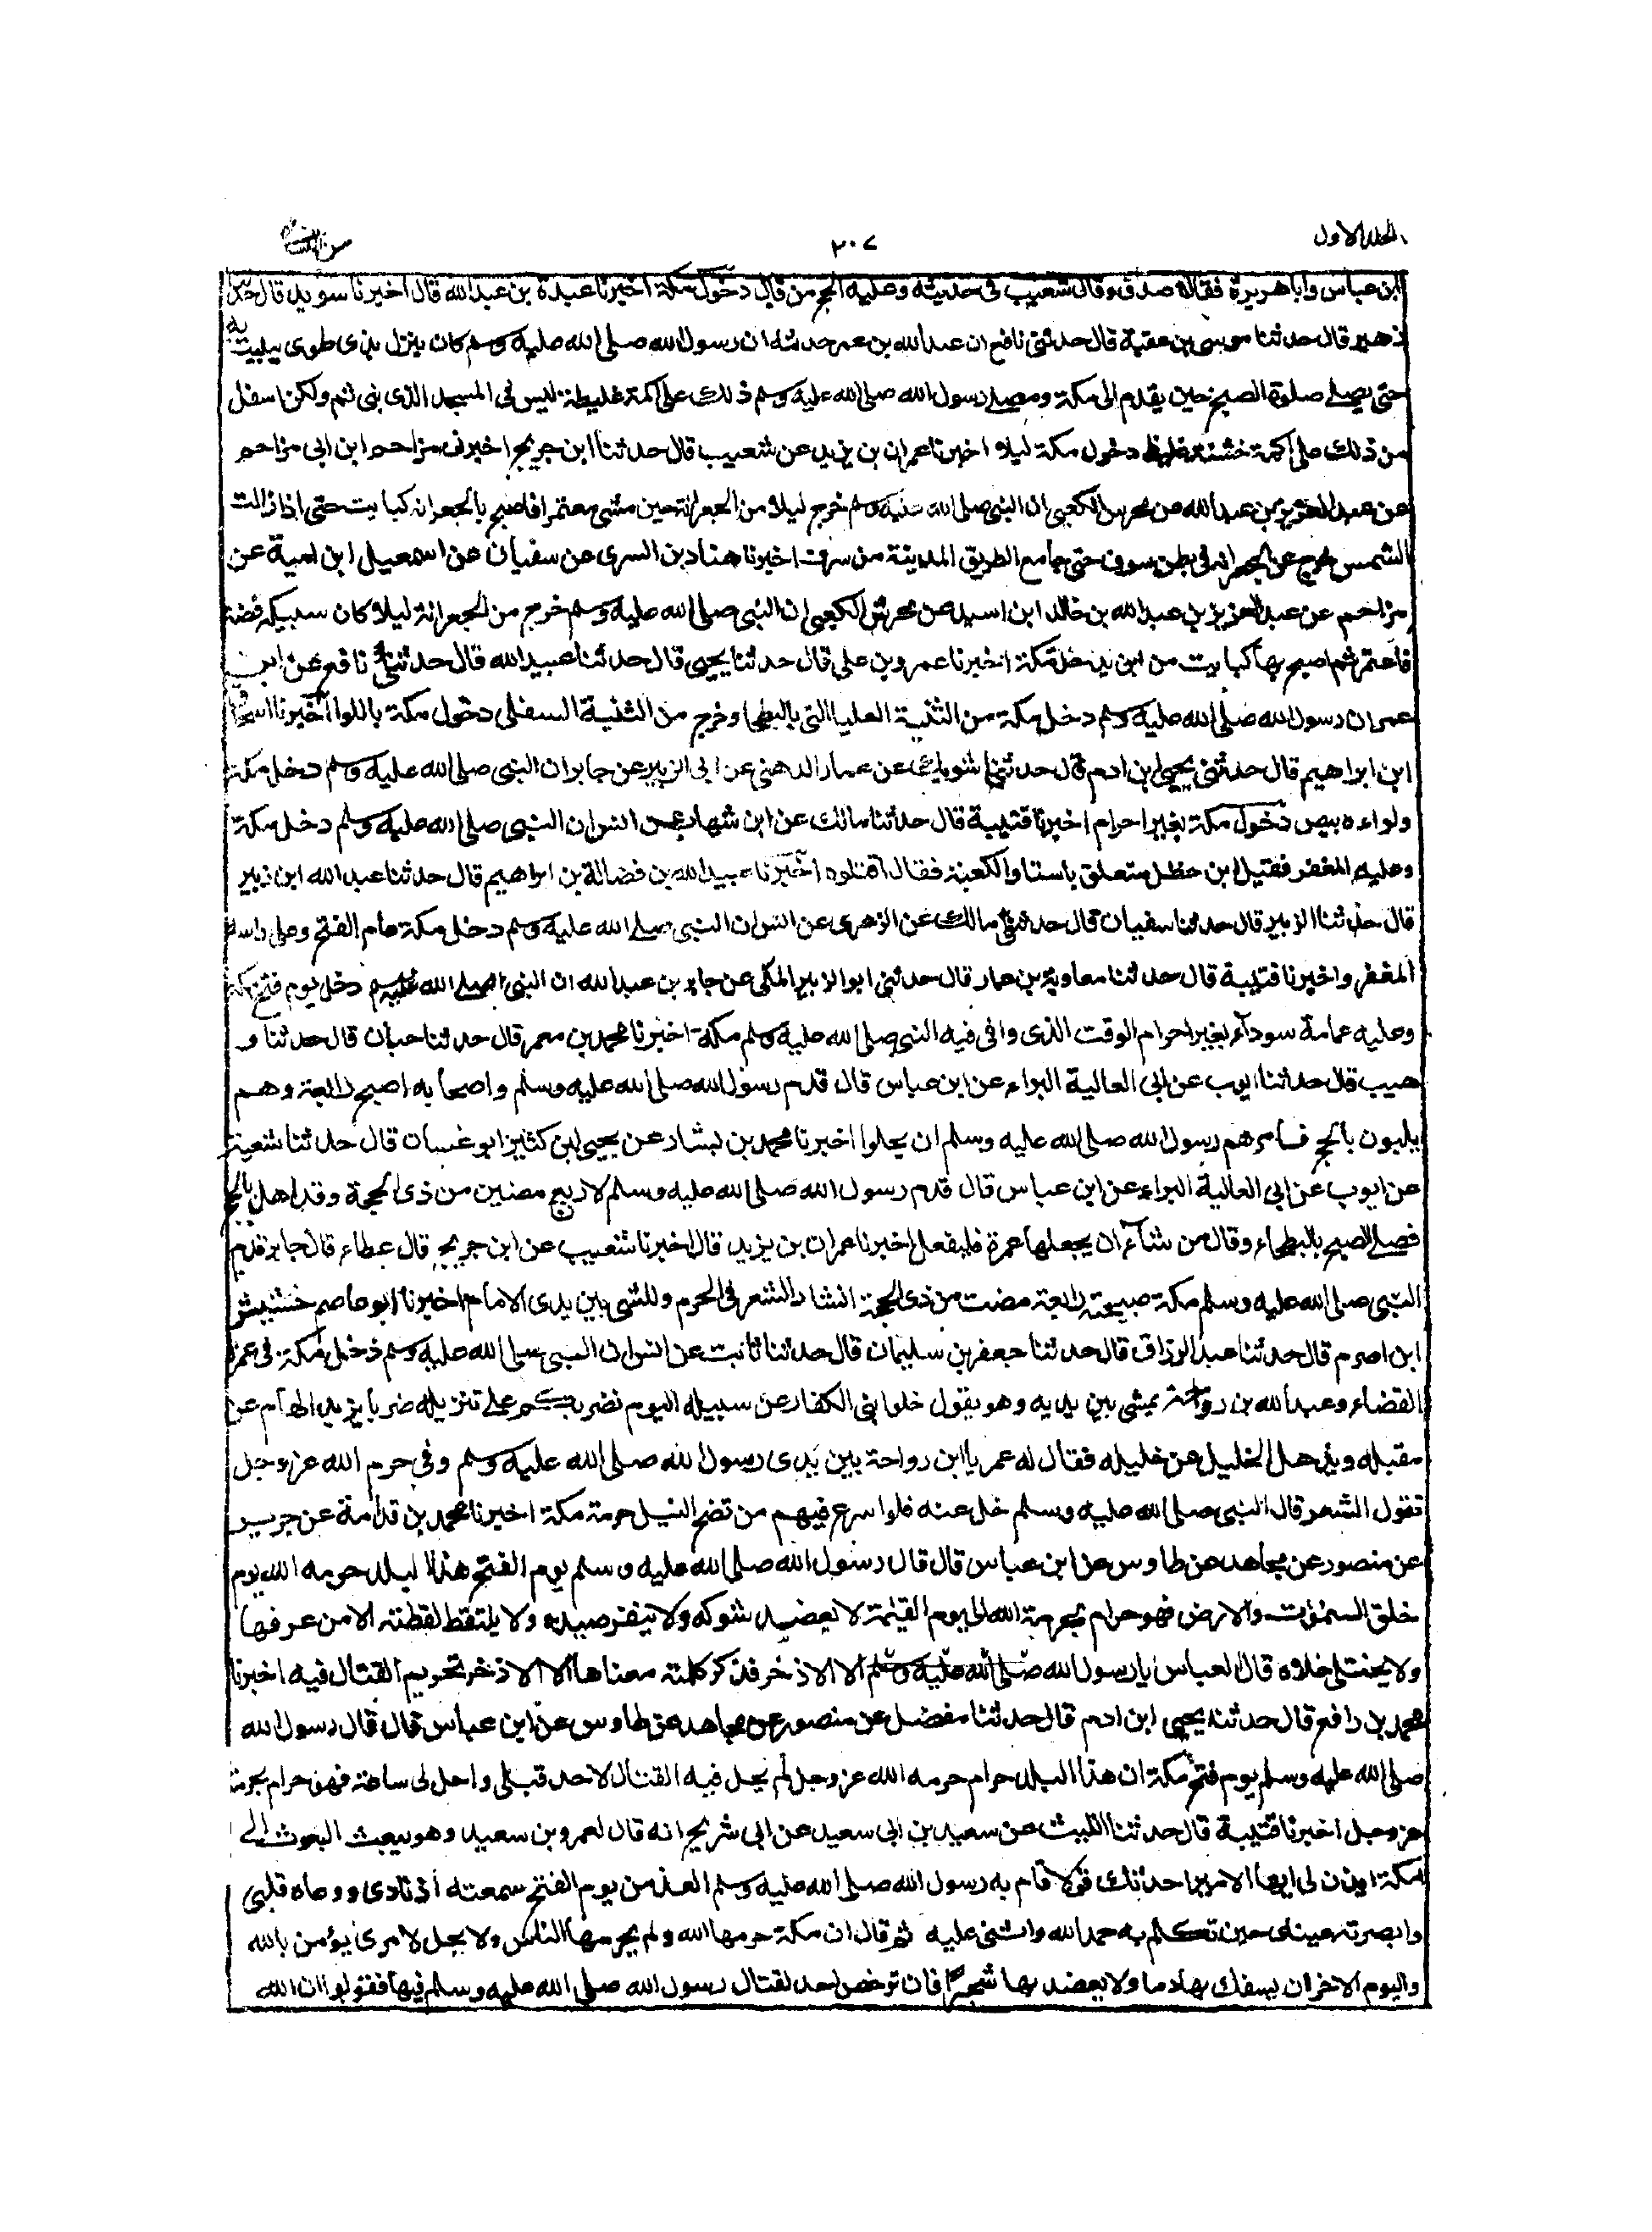 المجلد الاول
٢٠٧
ابن عباس وابا هريرة فقالا صدق وقال شعيب فى حديثه وعليه الحج من قابل دخول مكة اخبرنا عبدة بن عبدالله قال اخبرنا سويد قال حدثنا
زهير قال حدثنا موسى بن عقبة قال حدثنى نافع ان عبدالله بن عمر حدثه ان رسول الله صلى الله عليه وسلم كان ينزل بذى طوى يبيت به
حتى يصلے صلوة الصبح حين يقدم الى مكة ومصلے رسول الله صلى الله عليه وسلم ذلك على اكمة غليظة ليس فى المسجد الذى بنى ثم ولكن اسفل
من ذلك على اكمة خشنة غليظة دخول مكة ليلا اخبرنا عمران بن يزيد عن شعيب قال حدثنا ابن جريج اخبرنى مزاحم ابن ابى مزاحم
عن عبد العزيز بن عبدالله عن محرش الكعبى ان النبى صلى الله عليه وسلم خرج ليلا من الجعرانة حين مشى معتمرا فاصبح بالجعرانه كبايت حتى اذا زالت
الشمس خرج عن الجعرانه فى بطن سرف حتى جامع الطريق المدينة من سرف اخبرنا هناد بن السرى عن سفيان عن اسمعيل ابن امية عن
مزاحم عن عبد العزيز بن عبدالله بن خالد ابن اسيد عن محرش الكعبى ان النبى صلى الله عليه وسلم خرج من الجعرانة ليلا كان سبيكة فضة
فاعتمر ثم اصبح بها كبايت من اين يدخل مكة اخبرنا عمرو بن على قال حدثنا يحيى قال حدثنا عبيدالله قال حدثنى نافع عن ابن
عمر ان رسول الله صلى الله عليه وسلم دخل مكة من الثنية العليا التى بالبطحا وخرج من الثنية السفلى دخول مكة باللوا اخبرنا اسحٰق
ابن ابراهيم قال حدثنى يحيى ابن ادم قال حدثنا شريك عن عمار الدهنى عن ابى الزبير عن جابر ان النبى صلى الله عليه وسلم دخل مكة
ولواءه بيض دخول مكة بغير احرام اخبرنا قتيبة قال حدثنا مالك عن ابن شهاب عن انس ان النبى صلى الله عليه وسلم دخل مكة
وعليه المغفر فقيل ابن خطل متعلق باستار الكعبة فقال اقتلوه اخبرنا عبيدالله بن فضالة بن ابراهيم قال حدثنا عبد الله ابن زبير
قال حدثنا الزبير قال حدثنا سفيان قال حدثنى مالك عن الزهرى عن انس ان النبى صلے الله عليه وسلم دخل مكة عام الفتح وعلى راسه
المغفر واخبرنا قتيبة قال حدثنا معاوية بن عمار قال حدثنى ابو الزبير المكى عن جابر بن عبدالله ان النبى صلے الله عليه وسلم دخل يوم فتح مكة
وعليه عمامة سوداء بغير احرام الوقت الذى وافى فيه النبى صلى الله عليه وسلم مكة اخبرنا محمد بن معمر قال حدثنا حبان قال حدثنا و
هيب قال حدثنا ايوب عن ابى العالية البراء عن ابن عباس قال قدم رسول الله صلى الله عليه وسلم واصحابه اصبح رابعة وهم
يلبون بالحج فامرهم رسول الله صلى الله عليه وسلم ان يحلوا اخبرنا محمد بن بشار عن يحيى ابن كثير ابو غسان قال حدثنا شعبة
عن ايوب عن ابى العالية البراء عن ابن عباس قال قدم رسول الله صلى الله عليه وسلم لاربع مضين من ذى الحجة وقد اهل بالحج
فصلے الصبح بالبطحاء وقال من شاء ان يجعلها عمرة فليفعل اخبرنا عمران بن يزيد قال اخبرنا شعيب عن ابن جريج قال عطاء قال جابر قدم
النبى صلى الله عليه وسلم مكة صبيحة رابعة مضت من ذى الحجة انشاد الشعر فى الحرم وللشى بين يدى الامام اخبرنا ابو عاصم خشيش
ابن اصرم قال حدثنا عبد الرزاق قال حدثنا جعفر بن سليمان قال حدثنا ثابت عن انس ان النبى صلى الله عليه وسلم دخل مكة فى عمرة
القضاء وعبدالله بن رواحة يمشى بين يديه وهو يقول خلوا بنى الكفار عن سبيله اليوم نضربكم على تنزيله ضربا يزيل الهام عن
مقيله ويذهل الخليل عن خليله فقال له عمر يا ابن رواحة بين يدى رسول الله صلى الله عليه وسلم وفى حرم الله عز وجل
تقول الشعر قال النبى صلى الله عليه وسلم خل عنه فلو اسرع فيهم من نضح النبل حرمة مكة اخبرنا محمد بن قدامة عن جرير
عن منصور عن مجاهد عن طاوس عن ابن عباس قال قال رسول الله صلى الله عليه وسلم يوم الفتح هذا البلد حرمه الله يوم
خلق السمٰوٰت والارض فهو حرام بحرمة الله الى يوم القيٰمة لا يعضد شوكه ولا ينفر صيده ولا يلتقط لقطته الا من عرفها
ولا يختلى خلاه قال العباس يا رسول الله صلى الله عليه وسلم الا الاذخر فذكر كلمة معناها الا الاذخر تحريم القتال فيه اخبرنا
محمد بن رافع قال حدثنا يحيى ابن ادم قال حدثنا مفضل عن منصور عن مجاهد عن طاوس عن ابن عباس قال قال رسول الله
صلى الله عليه وسلم يوم فتح مكة ان هذا البلد حرام حرمه الله عز وجل لم يحل فيه القتال لاحد قبلى واحل لى ساعة فهو حرام بحرمة
عز وجل اخبرنا قتيبة قال حدثنا الليث عن سعيد بن ابى سعيد عن ابى شريح انه قال لعمرو بن سعيد وهو يبعث البعوث الى
مكة ايذن لى ايها الامير احدثك قولا قام به رسول الله صلى الله عليه وسلم الغد من يوم الفتح سمعته اذناى ووعاه قلبى
وابصرته عيناى حين تكلم به حمد الله واثنى عليه ثم قال ان مكة حرمها الله ولم يحرمها الناس ولا يحل لامرئ يؤمن بالله
واليوم الاخر ان يسفك بها دما ولا يعضد بها شجرا فان ترخص احد لقتال رسول الله صلى الله عليه وسلم فيها فقولوا ان الله